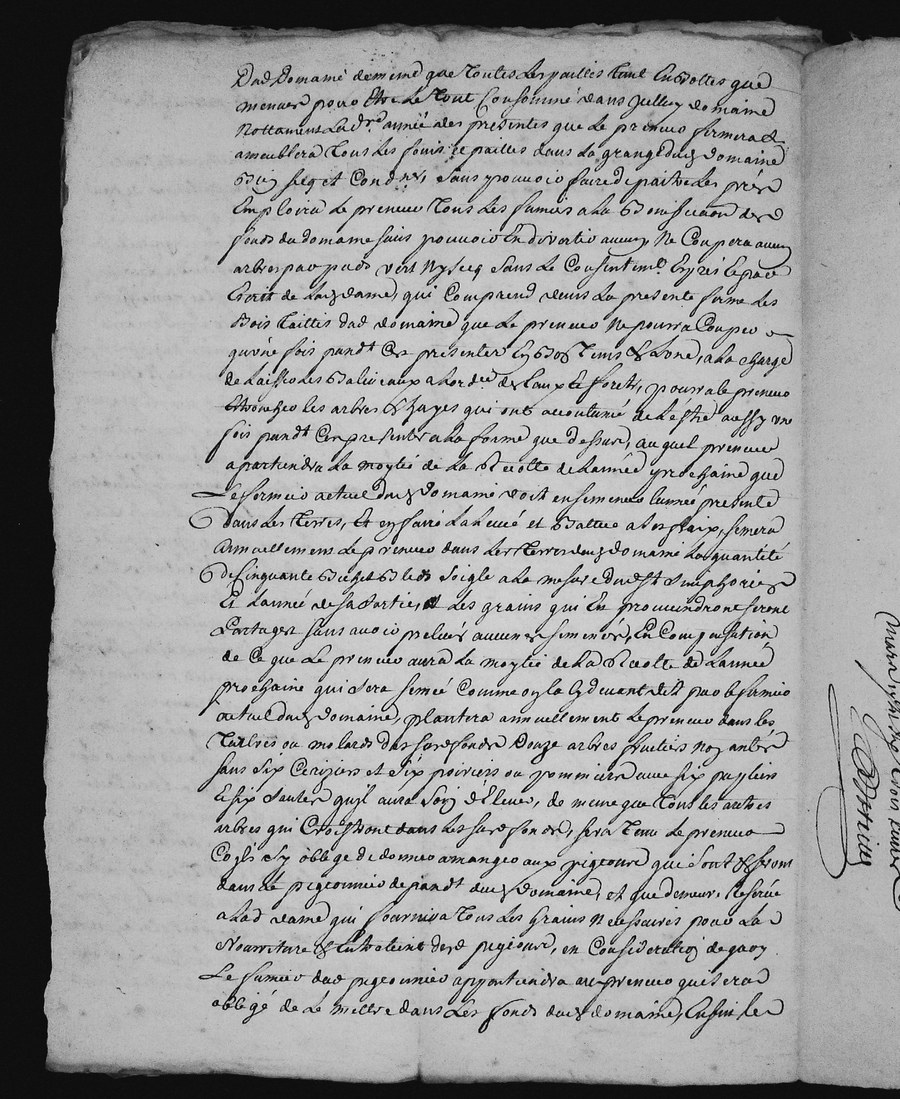 Dud Domainé de meme que toutes les pailles tant En bottes que
menues pour Etre Le tout Consommé dans jcelluy domaine
Nottament La d.re année des presentes que Le preneur fermera &
ameublera Tous Les foins et pailles dans La grange dud domainé
Bien secq et Condnés, sans pouvoir faire depaitre Les prés
Emploira Le preneur Tous Les fumiers a La Bonification des
fonds du domaine sans pouvoir En divertir aucun, Ne Coupera aucun
arbres par pieds vert Ny secq sans Le Consentim.t Exprès Et par
Ecrit de Lad dame, qui Comprend dans La presente ferme Les
Bois Taillis dud domainé que Le preneur Ne pourra Couper
qu'une fois pand.t Ces presentes En Bon Tems & Lune, a La charge
de Laisser Les Baliveaux a Lordce des Eaux Et forets, pourra le preneur
Ebrancher les arbres & hayes qui ont accoutumé de Lestre aussy une
fois pand.t Ces presentes a La forme que dessus, auquel preneur
apartiendra La moytié de La Recolte de Lannée prochaine que
Le fermier actuel dud domainé doit ensemencer lannée presente
dans Les Terres, Et en faire La Levée et Battre a ses fraix, semera
annuellement Le preneur dans Les Terres dud domainé La quantité
de Cinquante Bichets Bled Soigle a La mesure du d St Simphorien
Et Lannée de sa Sortie, & Les grains qui En proviendront seront
Partagés sans avoir prelevé aucunes semences, En Compensation
de Ce que Le preneur aura La moytié de La Recolte de Lannée
prochaine qui sera semée Comme on la Cy devant dit par le fermier
actuel dud domainé, plantera annuellement Le preneur dans les
Terres ou molards dus susd fonds Douze arbres fruitiers Noy antés
sans Six Cerisiers et Six poiriers ou pommiers avec six payliers
Et six Saules qu'jl aura Soin d'Elever, de meme que Tous les autres
arbres qui Croissront dans Les susd fonds, sera Tenu Le preneur
Coglisy obligé de donner a manger aux pigeons qui sont & seront
dans Le pigeonnier dependt dud domainé, et que demeure Reservé
a Lad dame qui fournira Tous Les grains Necessaires pour La
Nourriture & Entretient desd pigeons, en Consideration de quoy
Le fumier dud pigeonnier appartiendra au preneur que sera
obligé de Le mettre dans Les fonds dud domainé, Enfin les